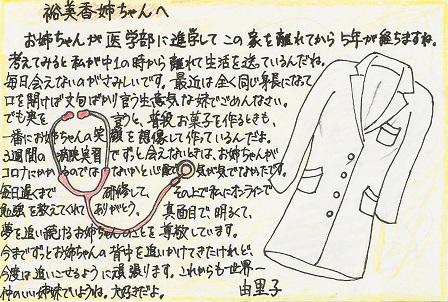 裕美香姉ちゃんへ
お姉ちゃんが医学部に進学してこの家を離れてから5年が経ちますね。
考えてみると私が中1の時から離れて生活を送っているんだね。
毎日会えないのが寂しいです。最近は全く同じ身長になって
口を開けば文句ばかり言う生意気な妹でごめんなさい。
でも実を言うと、普段お菓子を作るときも、
一番にお姉ちゃんの笑顔を想像して作っているんだよ。
3週間の病院実習でずっと会えないときは、お姉ちゃんが
コロナにかかるのではないかと心配で気が気でなかったです。
毎日遅くまで研修してその上で私にオンラインで
勉強を教えてくれてありがとう。真面目で明るくて、
夢を追い続けるお姉ちゃんのことを尊敬しています。
今までずっとお姉ちゃんの背中を追いかけてきたけれど、
今度は追いこせるように頑張ります。これからも世界一
仲のいい姉妹でいようね。大好きだよ。
由里子